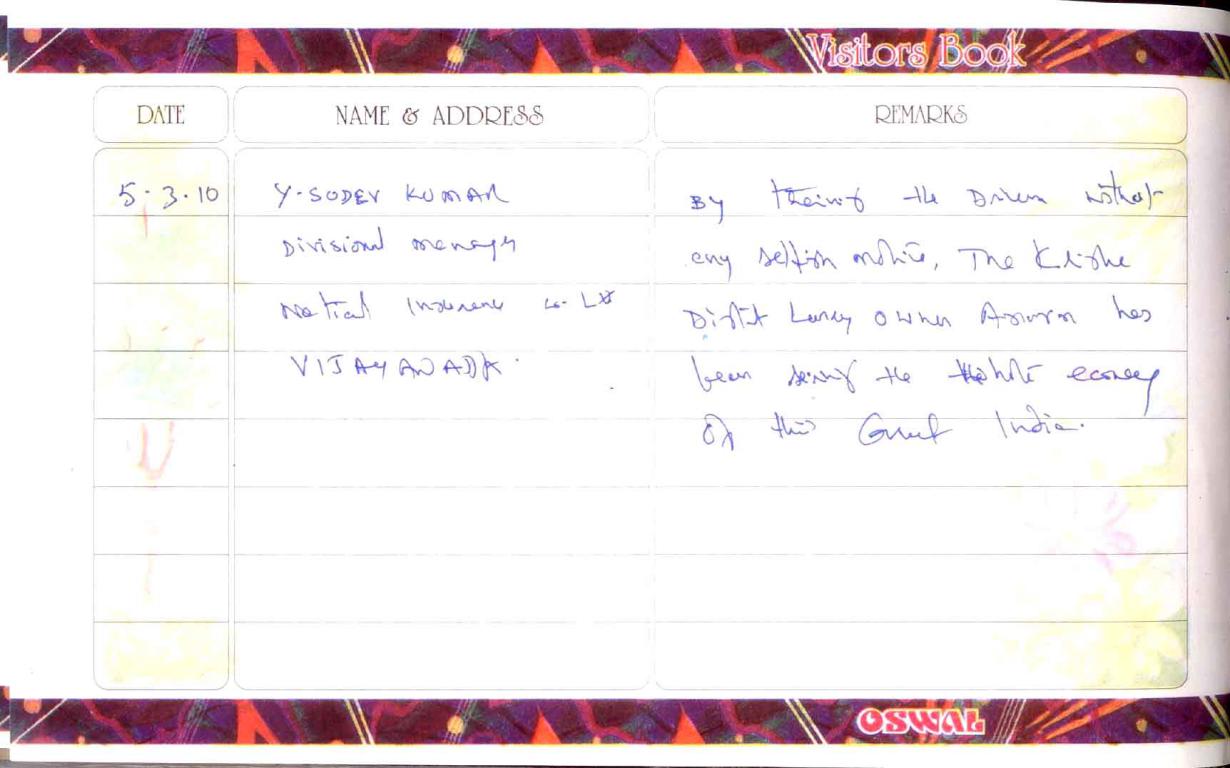 Visitors Book
DATE
NAME & ADDRESS
REMARKS
5.3.10
Y. SUDEV KUMAR
Divisional manager
National Insurance Co. Ltd
VIJAYAWADA.
By the Drivers without
any selfish motive, The Krishna
District Lorry Owners has
been the whole economy
Of this Great India.
OSWAL